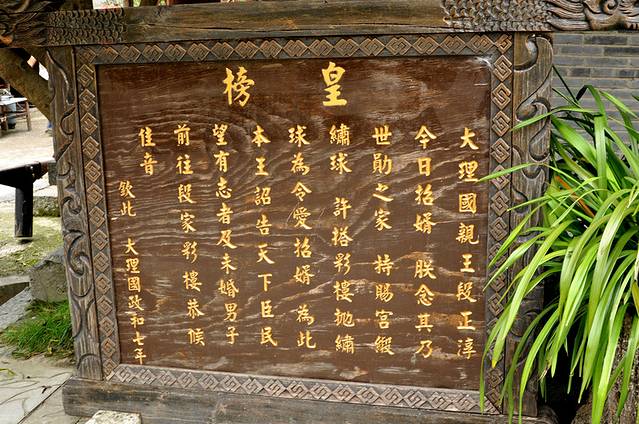 皇榜
大理國親王段正淳
今日招婿 朕念其乃
世勛之家 持賜宮緞
繡球 許搭彩樓拋繡
球為令愛招婿 為此
本王詔告天下臣民
望有志者及未婚男子
前往段家彩樓恭候
佳音
欽此 大理國政和七年